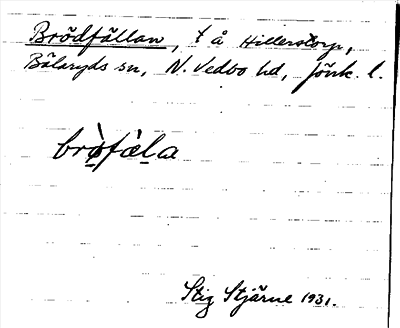 Brödfällan, t å Hillerstorp,
Bälaryds sn, N. Vedbo hd, Jönk. l.
brø̀fàla
Stig Stjärne 1931.